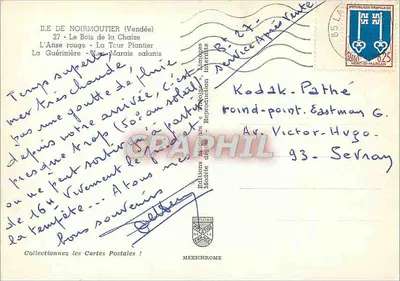 ILE DE NOIRMOUTIER (Vendée)
27 - Le Bois de la Chaize
L'Anse rouge - La Tour Plantier
La Guérinière - Les Marais salants
Temps superbe,
mer très chaude,
pas une goutte de pluie
depuis notre arrivée, c'est
presque trop (50° au soleil)
on ne peut sortir qu'à partir
de 16H. Vivement le
la tempête... A tous nos
bons souvenirs
Collectionnez les Cartes Postales !
MEXICHROME
Reproduction interdite
27-
Service Après Vente
85 LA
REPUBLIQUE FRANÇAISE
0,25
MONT-DE-MARSAN
Kodak-Pathé
rond-point. Eastman G.
Av. Victor-Hugo.
93 - Sevran
CARTAPHIL